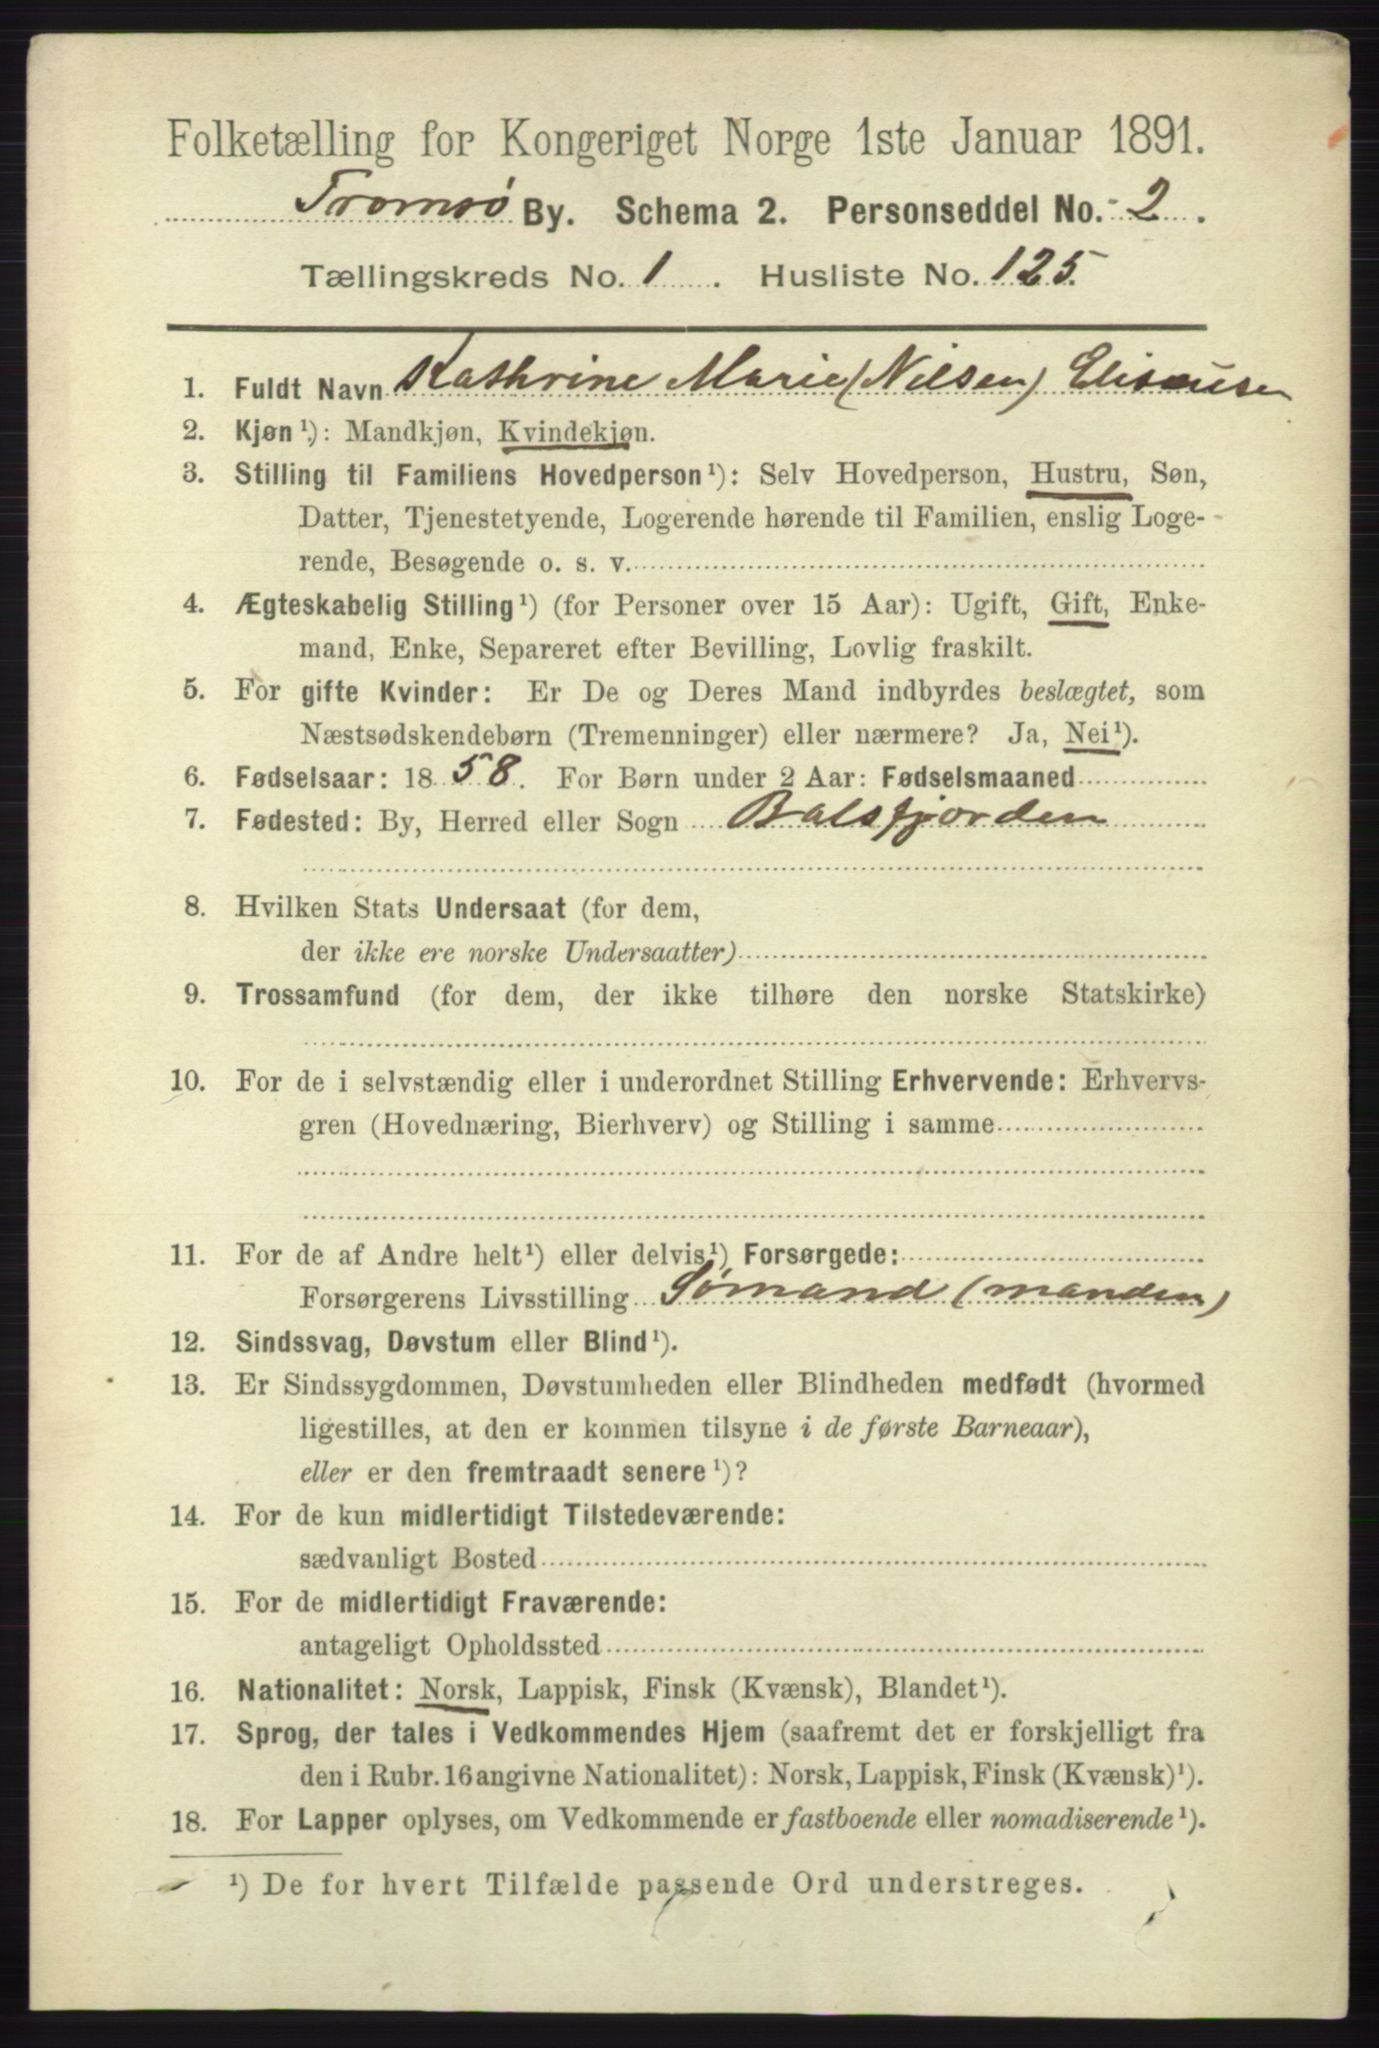 Folketælling for Kongeriget Norge 1ste Januar 1891.
Tromsø By. Schema 2. Personseddel No. 2.
Tællingskreds No. 1. Husliste No. 125.
1. Fuldt Navn Kathrine Marie (Nilsen) Eliseusen
2. Kjøn¹): Mandkjøn, Kvindekjøn.
3. Stilling til Familiens Hovedperson¹): Selv Hovedperson, Hustru, Søn,
Datter, Tjenestetyende, Logerende hørende til Familien, enslig Loge-
rende, Besøgende o. s. v.
4. Ægteskabelig Stilling¹) (for Personer over 15 Aar): Ugift, Gift, Enke-
mand, Enke, Separeret efter Bevilling, Lovlig fraskilt.
5. For gifte Kvinder: Er De og Deres Mand indbyrdes beslægtet, som
Næstsødskendebørn (Tremenninger) eller nærmere? Ja, Nei¹).
6. Fødselsaar: 1858. For Børn under 2 Aar: Fødselsmaaned
7. Fødested: By, Herred eller Sogn Balsfjorden
8. Hvilken Stats Undersaat (for dem,
der ikke ere norske Undersaatter)
9. Trossamfund (for dem, der ikke tilhøre den norske Statskirke)
10. For de i selvstændig eller i underordnet Stilling Erhvervende: Erhvervs-
gren (Hovednæring, Bierhverv) og Stilling i samme
11. For de af Andre helt¹) eller delvis¹) Forsørgede:
Forsørgerens Livsstilling Sømand (manden)
12. Sindssvag, Døvstum eller Blind¹).
13. Er Sindssygdommen, Døvstumheden eller Blindheden medfødt (hvormed
ligestilles, at den er kommen tilsyne i de første Barneaar),
eller er den fremtraadt senere¹)?
14. For de kun midlertidigt Tilstedeværende:
sædvanligt Bosted
15. For de midlertidigt Fraværende:
antageligt Opholdssted
16. Nationalitet: Norsk, Lappisk, Finsk (Kvænsk), Blandet¹).
17. Sprog, der tales i Vedkommendes Hjem (saafremt det er forskjelligt fra
den i Rubr. 16 angivne Nationalitet): Norsk, Lappisk, Finsk (Kvænsk)¹).
18. For Lapper oplyses, om Vedkommende er fastboende eller nomadiserende¹).
¹) De for hvert Tilfælde passende Ord understreges.